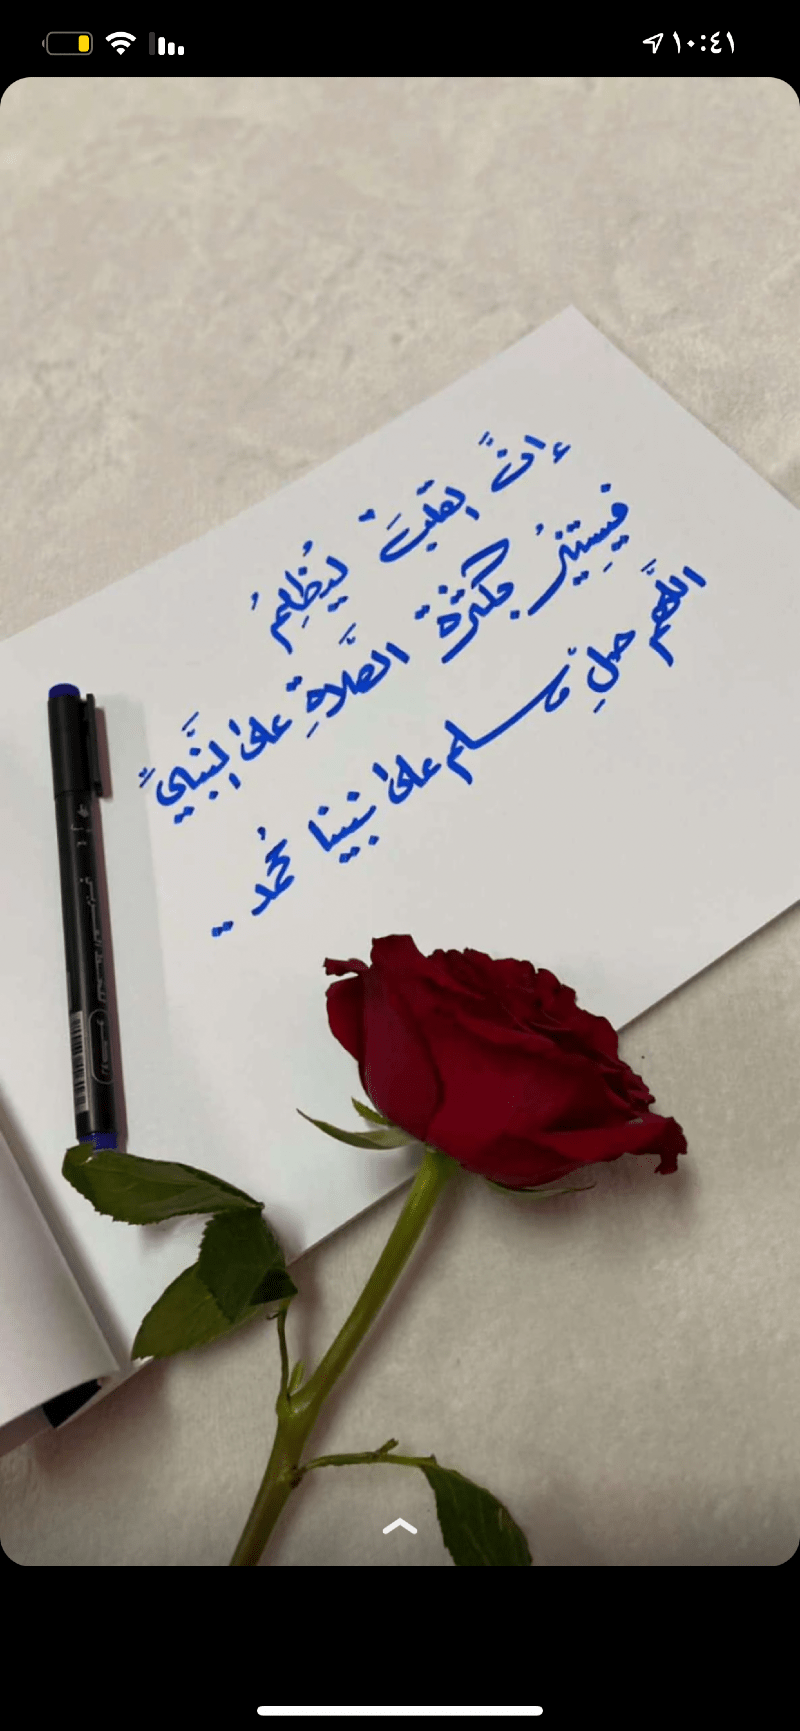 ١٠:٤١
إنَّ القلبَ ليُظلِمُ
فيستنيرُ بكثرة الصَّلاةِ على النَّبيِّ
اللَّهمَّ صلِّ وسلم على نبينا مُحمد ..